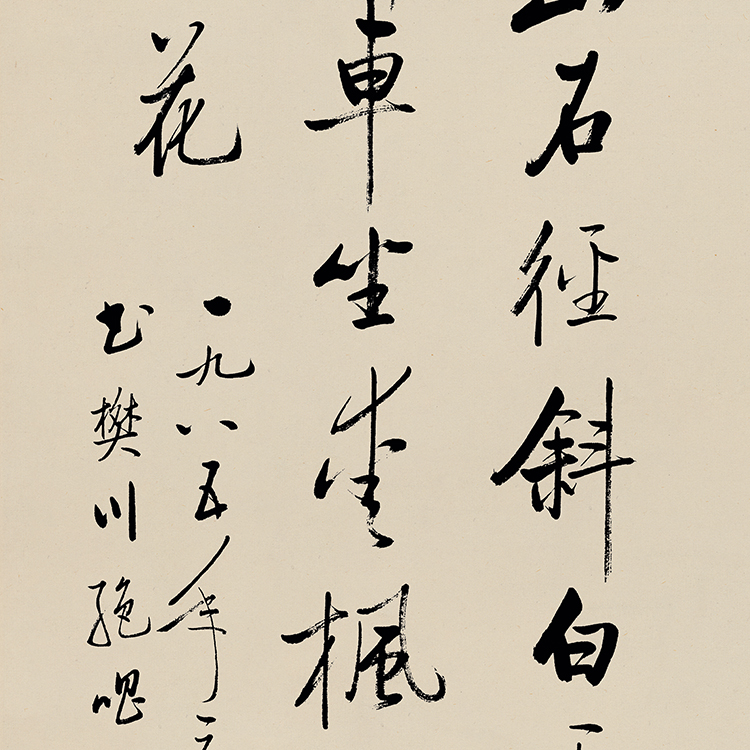 山石徑斜白
車坐愛楓
花
一九八五年
书樊川絶唱